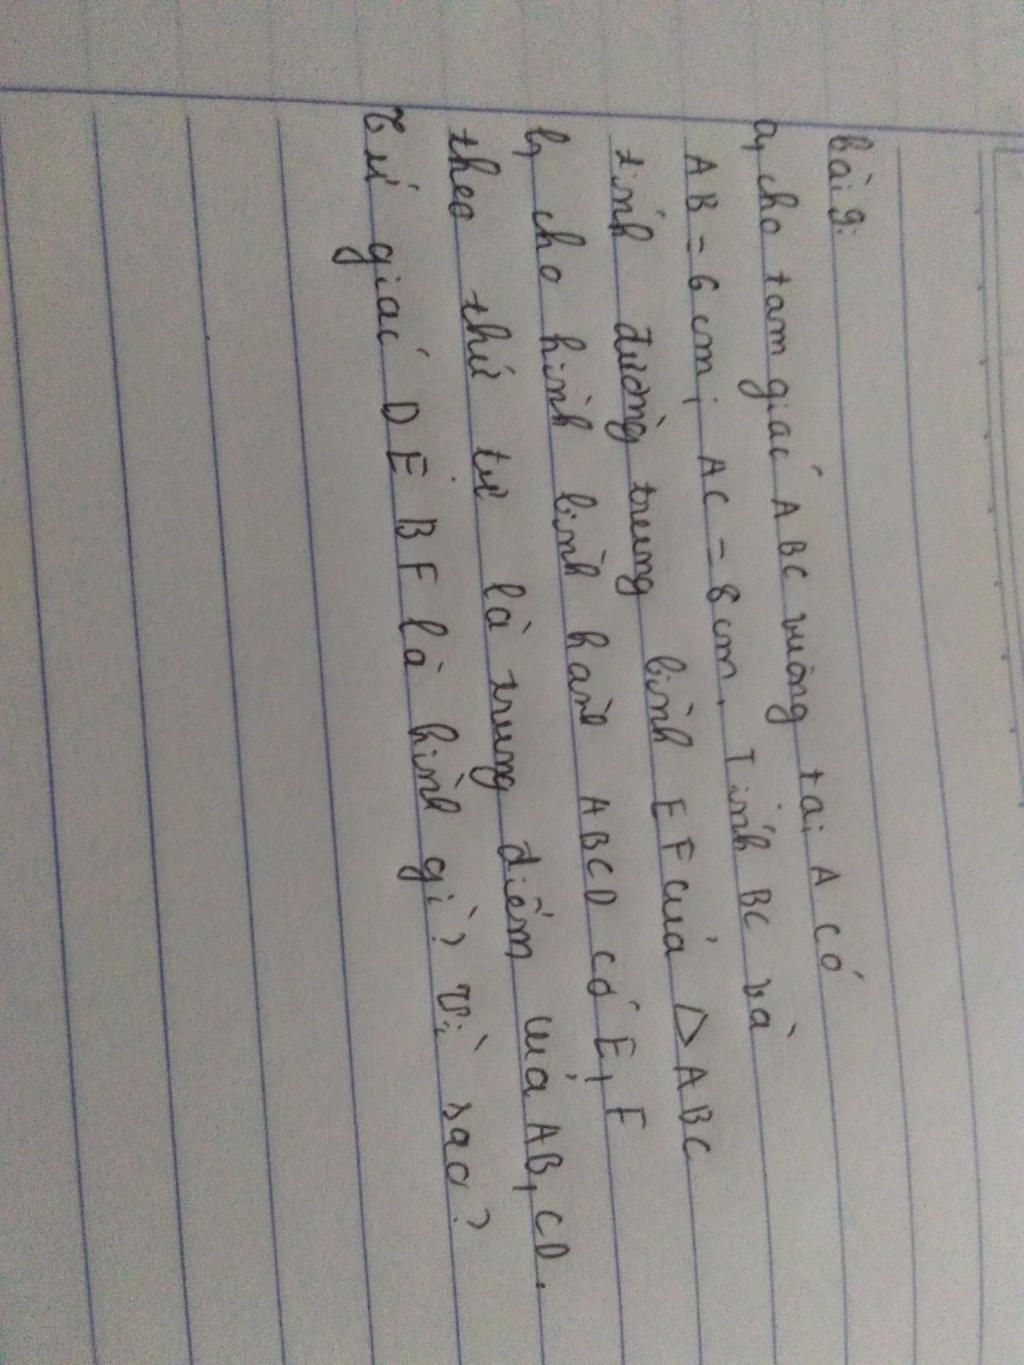 bài 9:
a, cho tam giác ABC vuông tại A có
AB = 6 cm; AC = 8 cm. Tính BC và
tính đường trung bình EF của △ ABC
b, cho hình bình hành ABCD có E, F
theo thứ tự là trung điểm của AB, CD.
Tứ giác DEBF là hình gì? Vì sao?